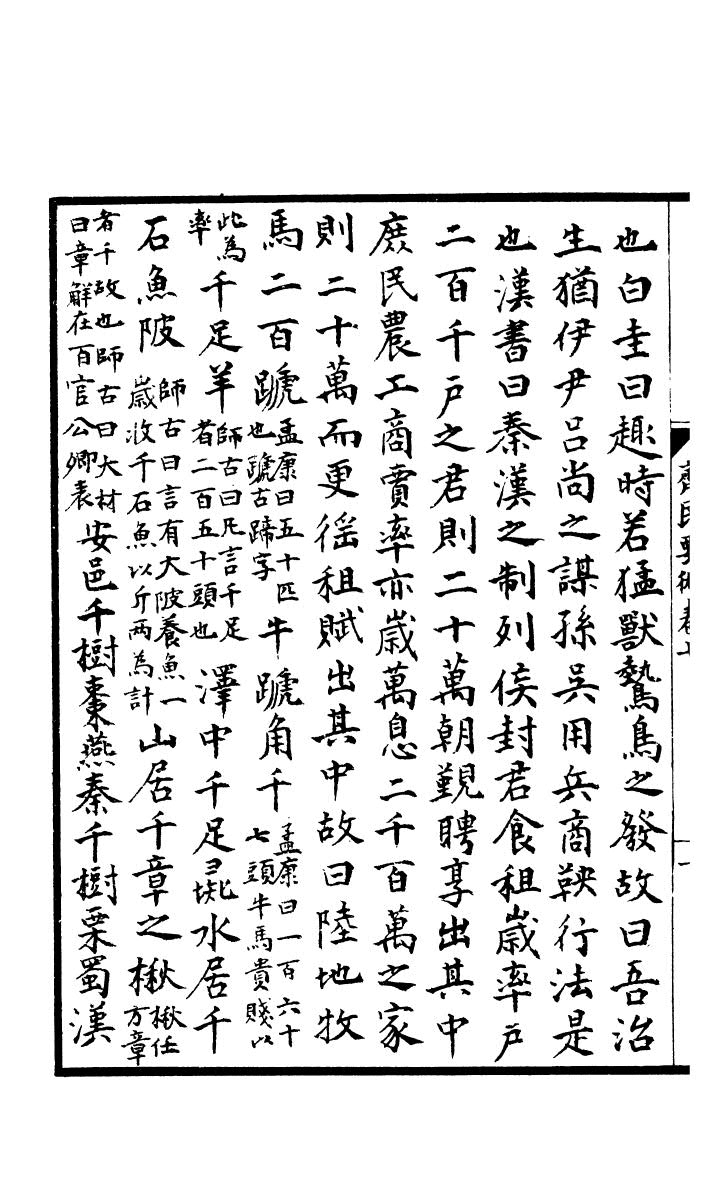 也白圭曰趣時若猛獸鷙鳥之發故曰吾治
生猶伊尹呂尚之謀孫吳用兵商鞅行法是
也漢書曰秦漢之制列侯封君食租歲率戶
二百千戶之君則二十萬朝覲聘享出其中
庶民農工商賈率亦歲萬息二千百萬之家
則二十萬而更徭租賦出其中故曰陸地牧
馬二百蹏孟康曰五十匹也蹏古蹄字牛蹏角千孟康曰一百六十七頭牛馬貴賤以
此為率千足羊師古曰凡言千足者二百五十頭也澤中千足彘水居千
石魚陂師古曰言有大陂養魚一歲收千石魚以斤兩為計山居千章之楸楸任方章
者千故也師古曰大材曰章解在百官公卿表安邑千樹棗燕秦千樹栗蜀漢
齊民要術卷七